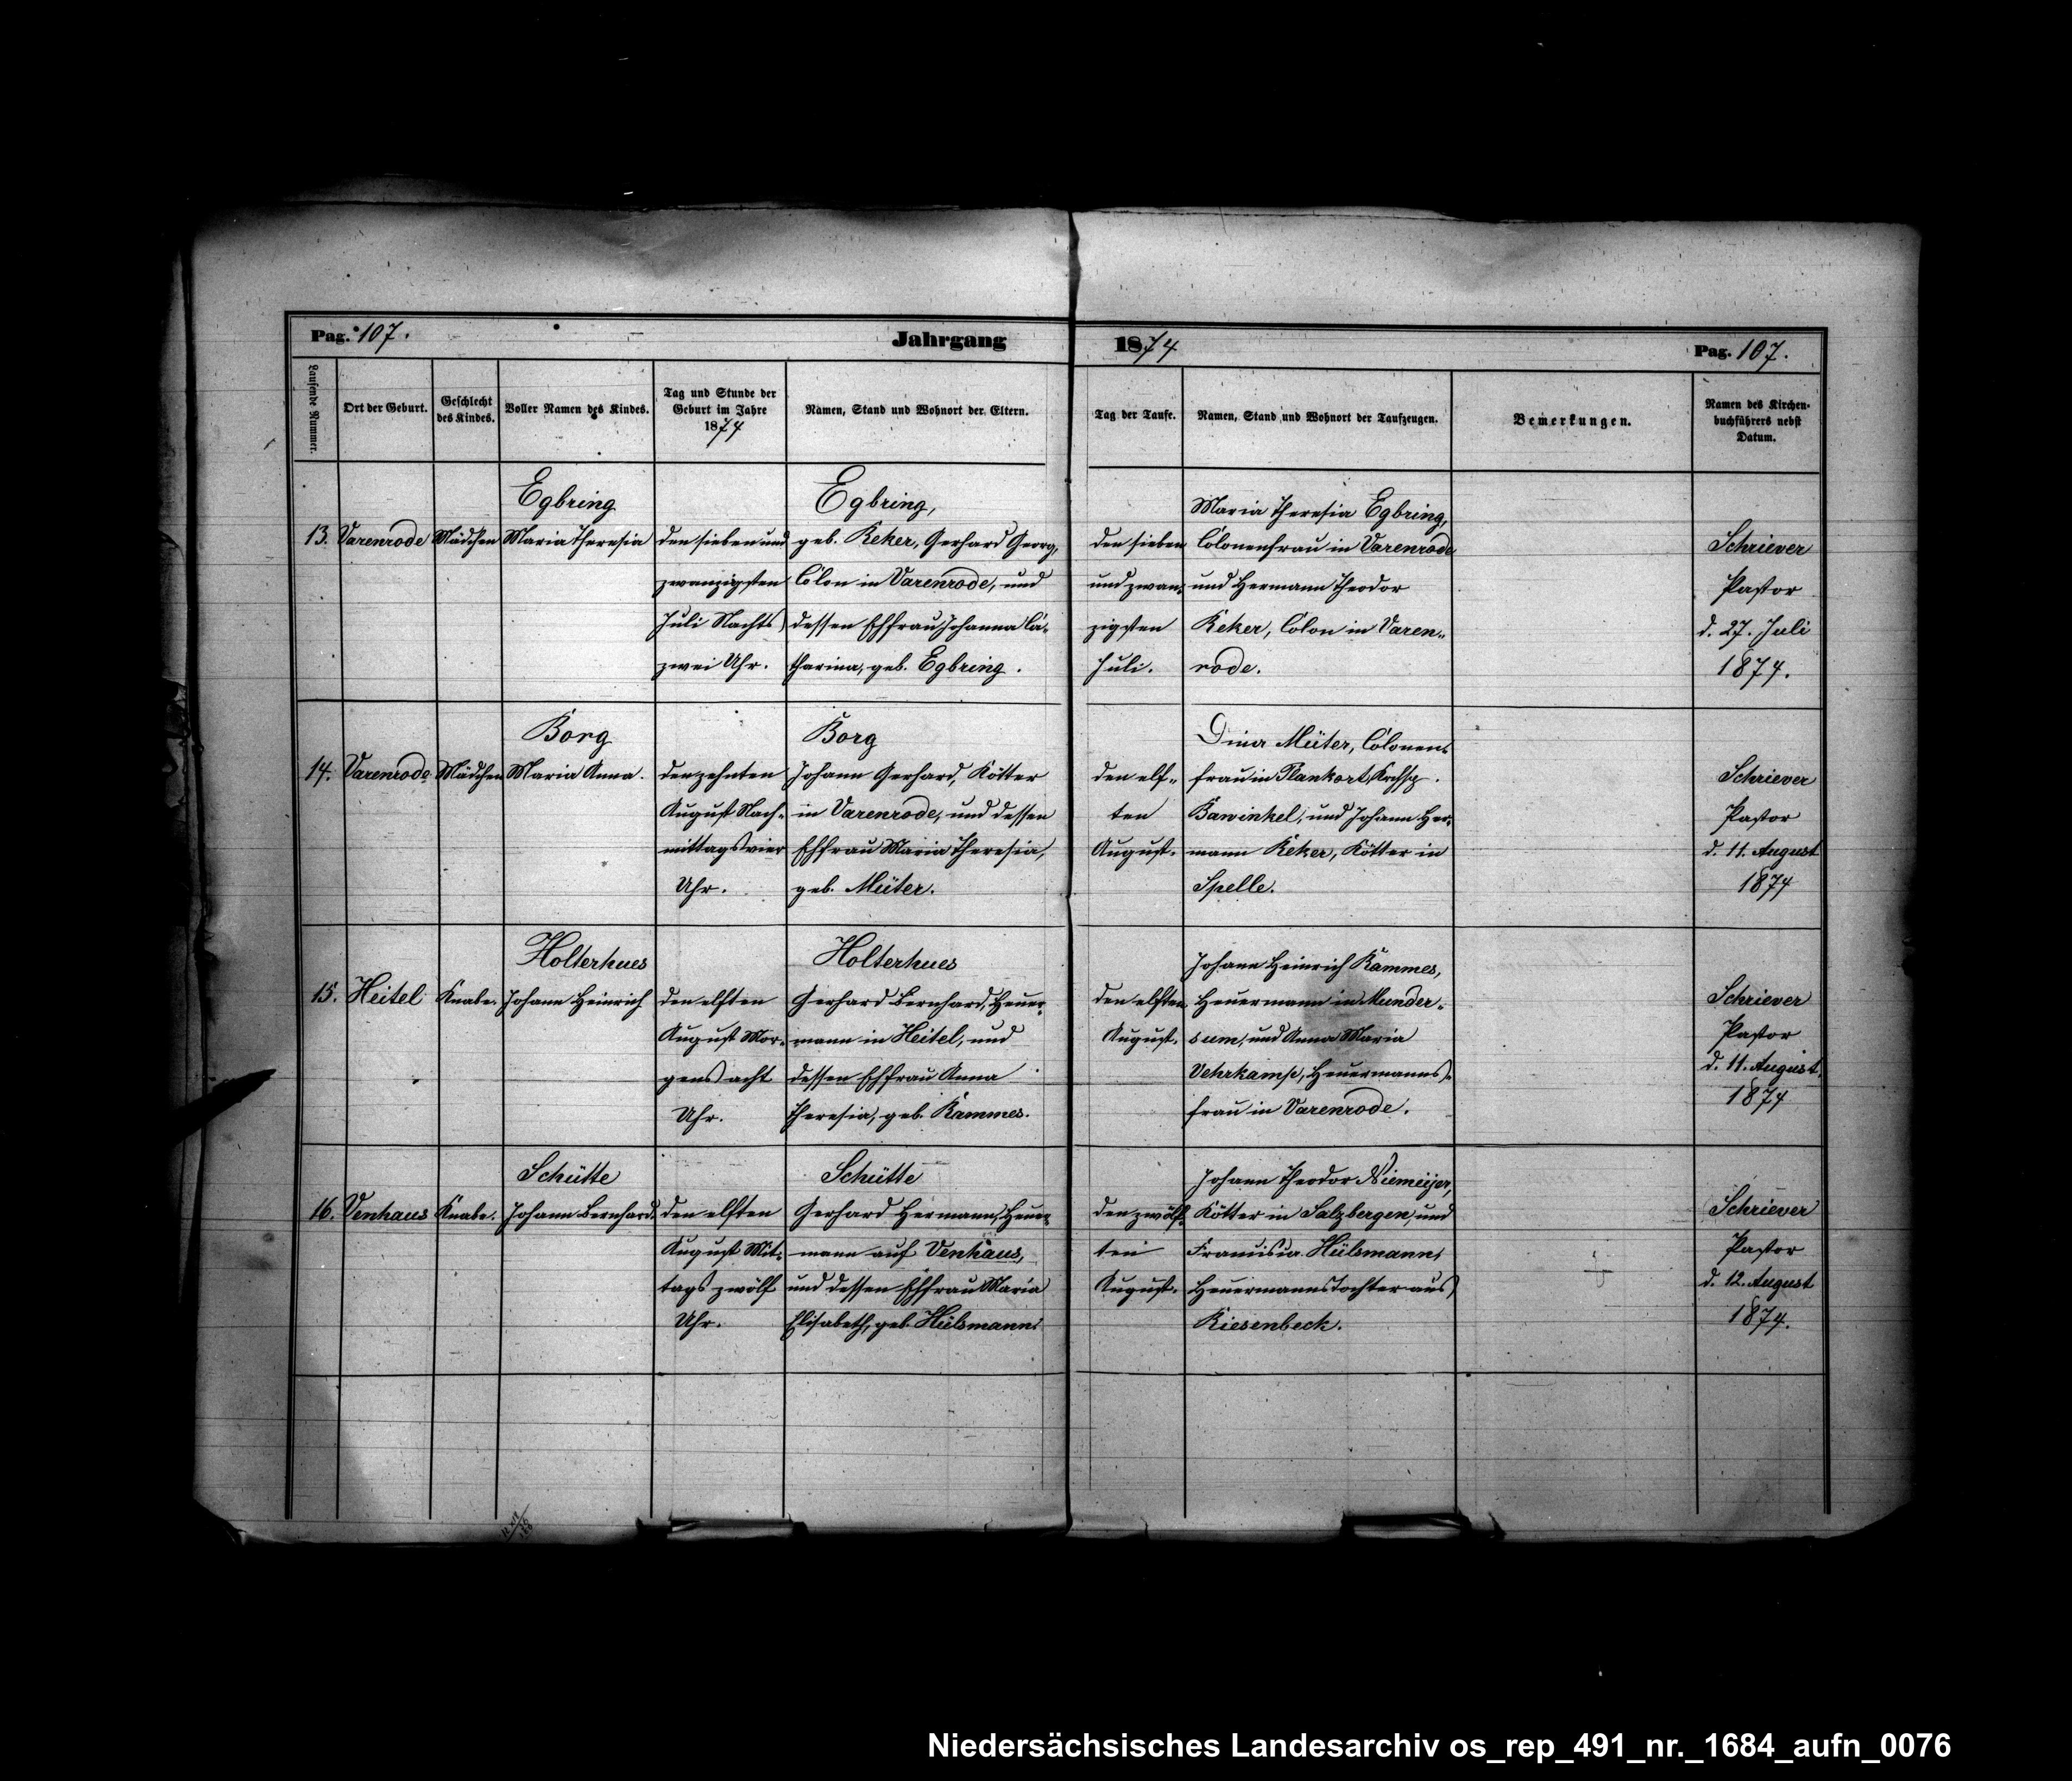 Pag. 107. Jahrgang 1874 Pag. 107.
Laufende Nummer.
Ort der Geburt.
Geschlecht
des Kindes.
Voller Namen des Kindes.
Tag und Stunde der
Geburt im Jahre
1874
Namen, Stand und Wohnort der Eltern.
Tag der Taufe.
Namen, Stand und Wohnort der Taufzeugen.
Bemerkungen.
Namen des Kirchen-
buchführers nebst
Datum.
13.
Varenrode
Mädchen
Egbring
Maria Theresia
den sieben und
zwanzigsten
Juli Nachts
zwei Uhr.
Egbring,
geb. Reker, Gerhard Georg,
Colon in Varenrode, und
dessen Ehfrau Johanna Ca-
tharina, geb. Egbring.
den sieben
und zwan-
zigsten
Juli.
Maria Theresia Egbring,
Colonenfrau in Varenrode
und Hermann Theodor
Reker, Colon in Varen-
rode.
Schriever
Pastor
d. 27. Juli
1874.
14.
Varenrode
Mädchen
Borg
Maria Anna.
den zehnten
August Nach-
mittags vier
Uhr.
Borg
Johann Gerhard, Kötter
in Varenrode, und dessen
Ehfrau Maria Theresia,
geb. Müter.
den elf-
ten
August.
Dina Müter, Colonen-
frau in Plankort, Krchsp.
Bawinkel, und Johann Her-
mann Reker, Kötter in
Spelle.
Schriever
Pastor
d. 11. August
1874
15.
Heitel
Knabe.
Holterhues
Johann Heinrich
den elften
August Mor-
gens acht
Uhr.
Holterhues
Gerhard Bernhard, Heuer-
mann in Heitel, und
dessen Ehfrau Anna
Theresia, geb. Kammes.
den elften
August.
Johann Heinrich Kammes,
Heuermann in Munder-
sum, und Anna Maria
Vehrkamp, Heuermanns-
frau in Varenrode.
Schriever
Pastor
d. 11. August
1874
16.
Venhaus
Knabe.
Schütte
Johann Bernhard.
den elften
August Mit-
tags zwölf
Uhr.
Schütte
Gerhard Hermann, Heuer-
mann auf Venhaus,
und dessen Ehfrau Maria
Elisabeth, geb. Hülsmann.
den zwölf-
ten
August.
Johann Theodor Niemeijer,
Kötter in Salzbergen, und
Francisca Hülsmann,
Heuermannstochter aus
Riesenbeck.
Schriever
Pastor
d. 12. August
1874.
Niedersächsisches Landesarchiv os_rep_491_nr._1684_aufn_0076